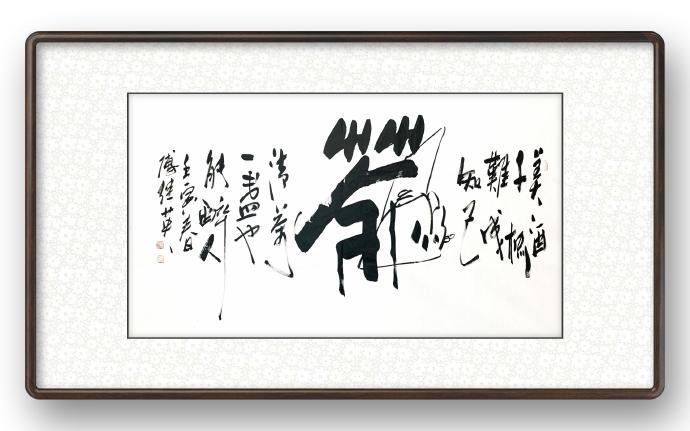 美酒
千杯
難成
知己
茶
清茶
一盏也
能醉人
壬寅春日